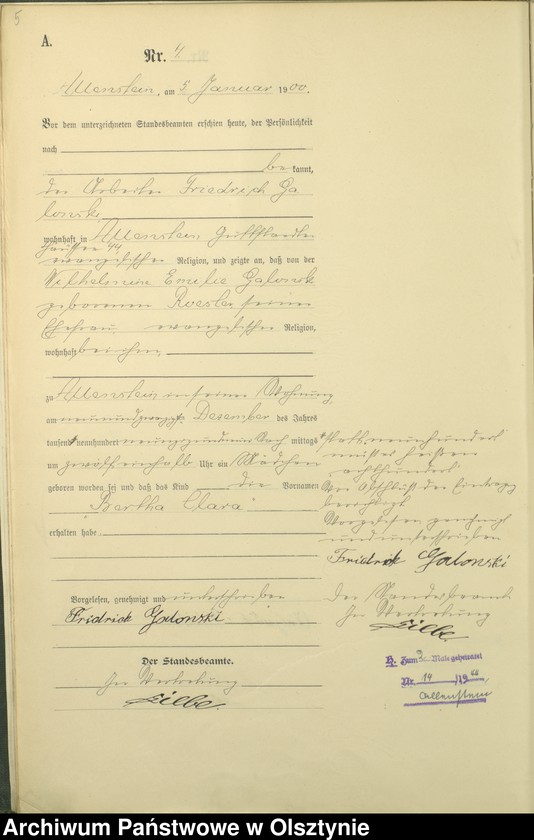 5
A.
Nr. 4
Allenstein, am 5 Januar 1900.
Vor dem unterzeichneten Standesbeamten erschien heute, der Persönlichkeit
nach
be kannt,
der Arbeiter Friedrich Ga
lonski
wohnhaft in Allenstein
44
evangelischer Religion, und zeigte an, daß von der
Wilhelmine Emilie Galonski
geborenen Roesler, seiner
Ehefrau, evangelischer Religion,
wohnhaft bei ihm,
zu Allenstein in seiner Wohnung
am neunundzwanzigsten Dezember des Jahres
tausend neunhundert neunzig und neun Nach mittags
um zwölf einhalb Uhr ein Mädchen
geboren worden sei und daß das Kind die Vornamen
Bertha Clara
erhalten habe.
Vorgelesen, genehmigt und unterschrieben
Fridrick Galonski
Der Standesbeamte.
In Vertretung
Lilbe.
statt neunhundert
muss es heissen
achthundert
Vor Abschluß der Eintragung
berichtigt
Vorgelesen genehmigt
und unterschrieben
Fridrick Galonski
Der Standesbeamte
In Vertretung
Lilbe.
Zum 2 Male geheiratet
Nr. 19 /19
Allenstein
Archiwum Państwowe w Olsztynie